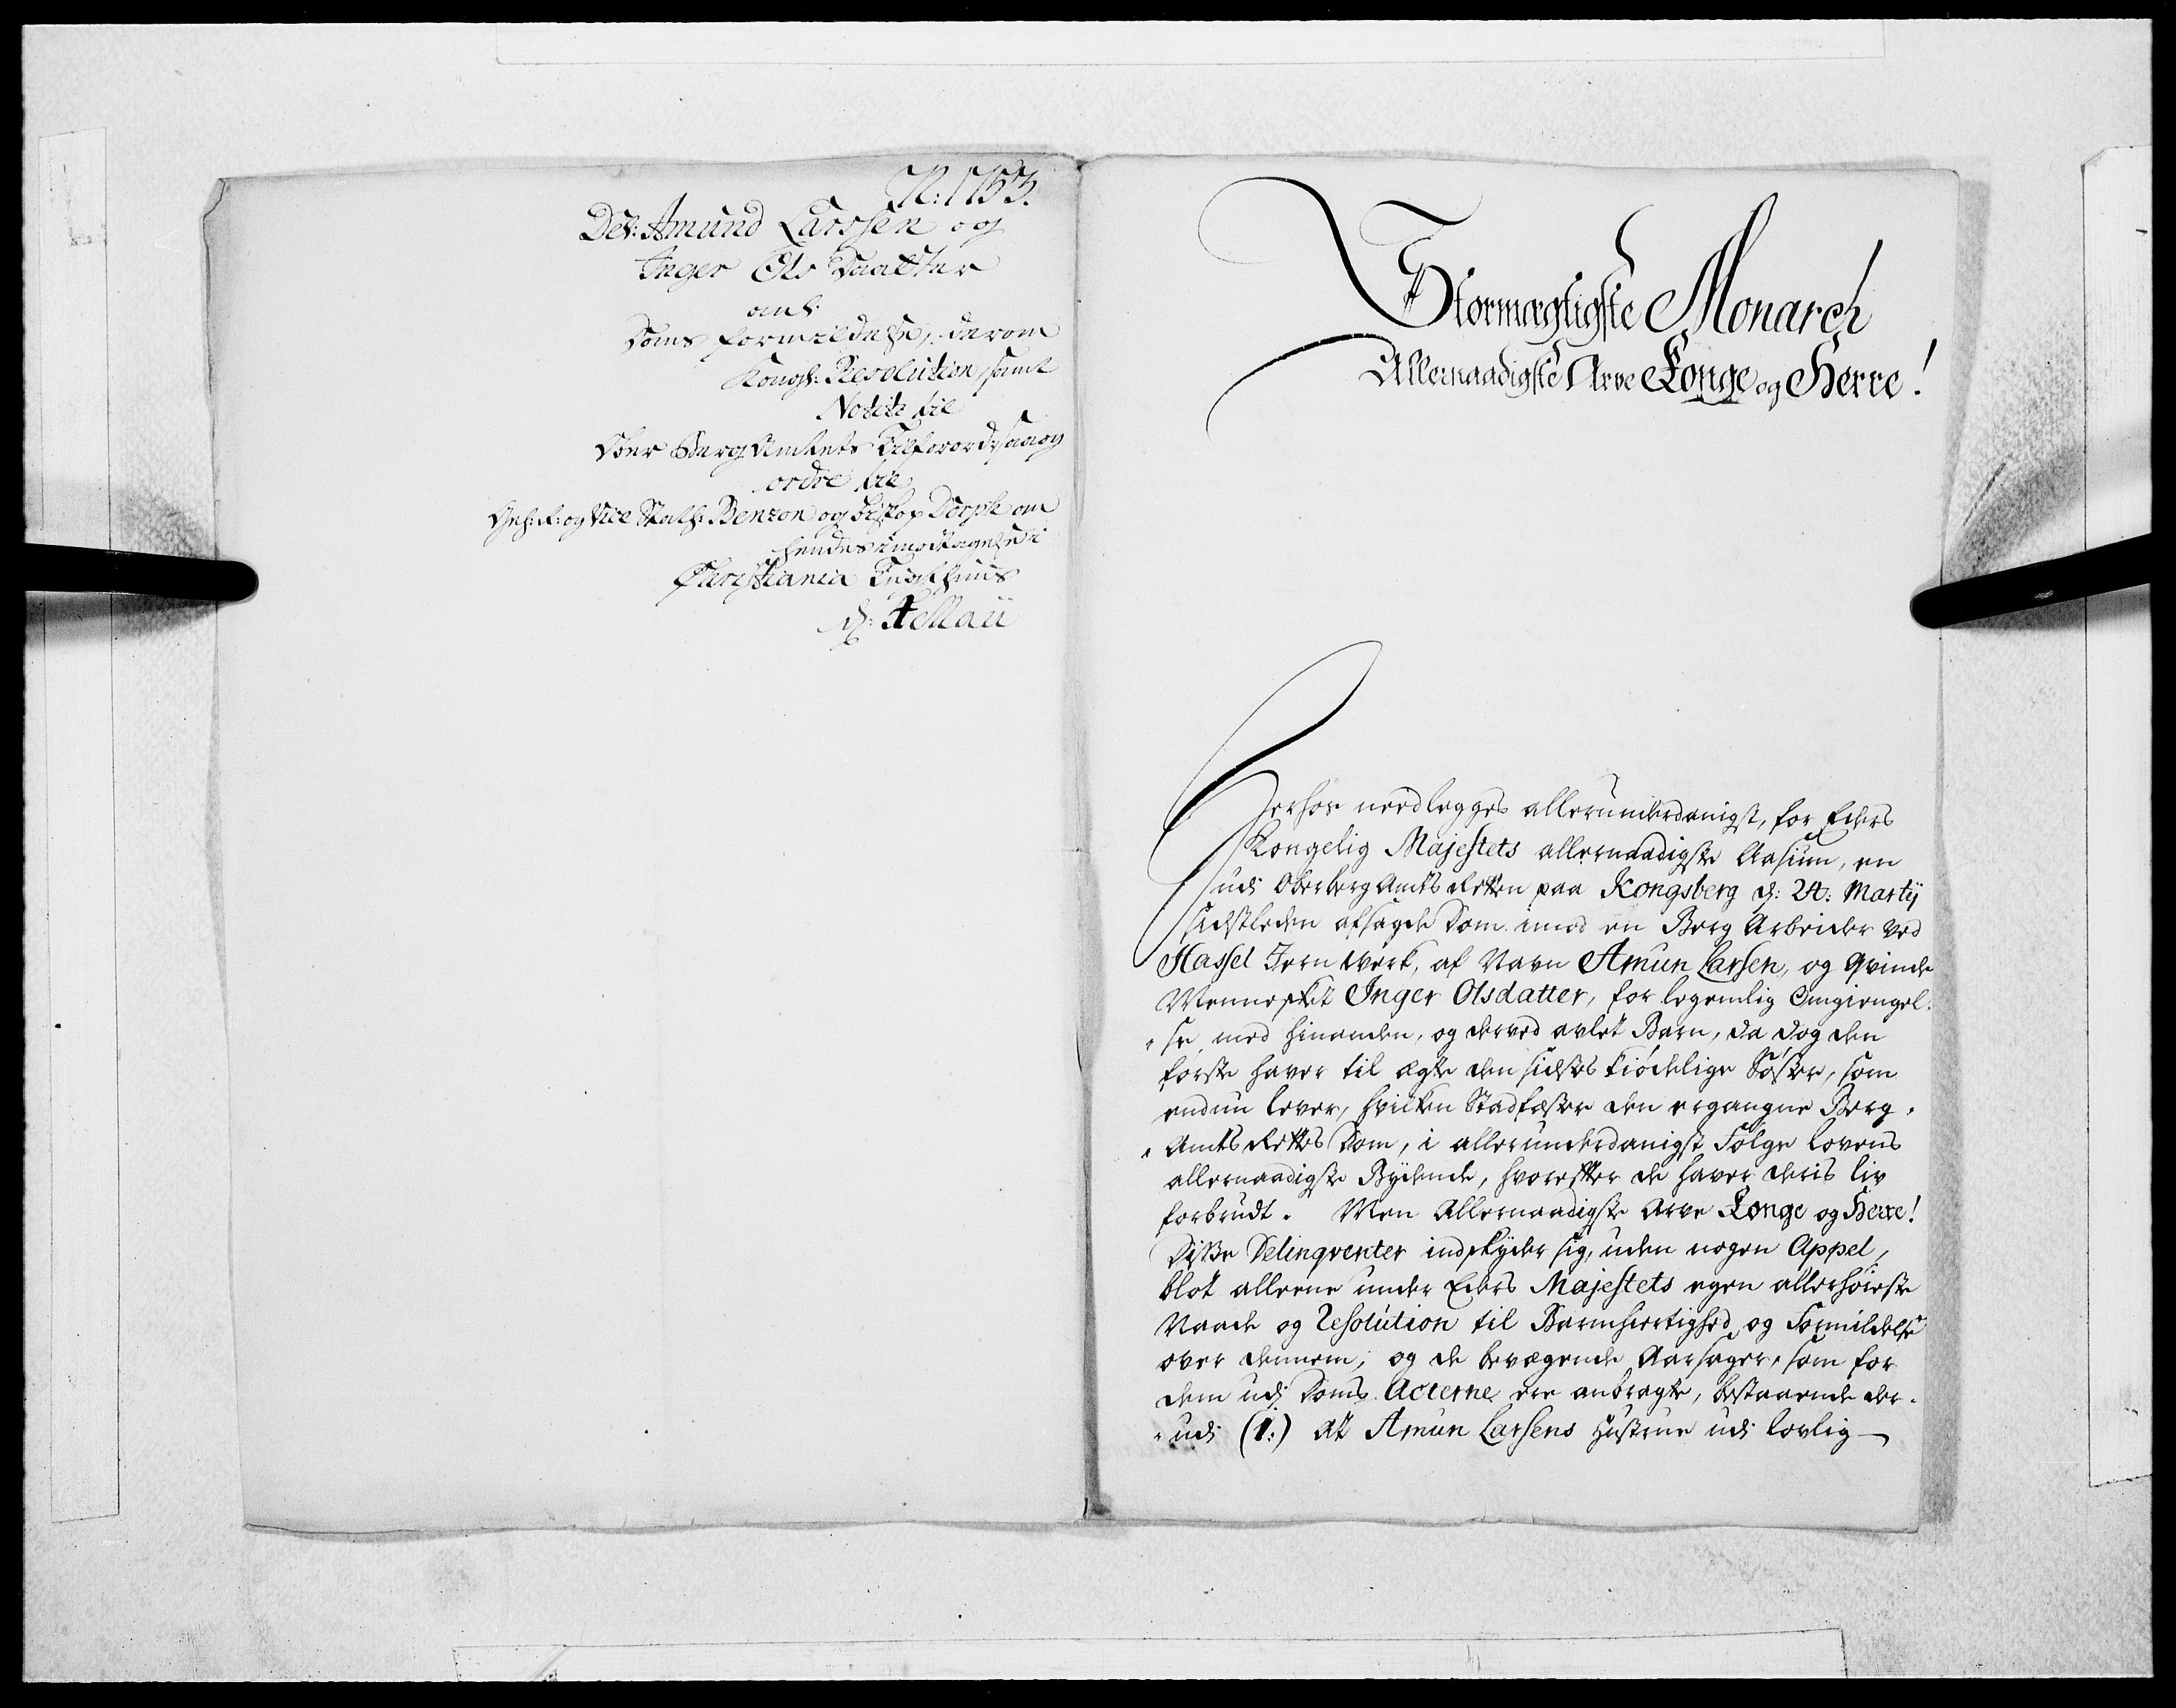 N: 1753.
Del: Amund Larssen og
Inger Ols Daatter
anl:
Doms formildelse, derom
Kongl: Resolution, samt
Notitz til
Ober Berg Amtets Tilforordn: saa og
ordre til
Geh: R: og Vice Stath: Benzon og Biskop Dorph om
hendes imodtagelse i
Christiania Tugthuus
d: 4 Maii
Stormægtigste Monarch
Allernaadigste Arve Konge og Herre!
Herhos nedlegges allerunderdanigst, for Eders
Kongelig Majestets allernaadigste Aasiun, en
udi OberbergAmtsRetten paa Kongsberg d: 24: Martij
sidstleden afsagde Dom imod en Berg Arbeider ved
Hassel Jern Werk, af Navn Amun Larsen, og Qvinde
Mennesket Inger Olsdatter, for legemlig Omgiengel-
se med hinanden, og derved avlet Barn, da dog den
første haver til ægte den sidstes kiødelige Søster, som
endnu lever, hvilken Stadfæster den ergangne Berg-
AmtsRettes Dom, i allerunderdanigst Følge Lovens
allernaadigste Bydende, hvorefter de haver deris Liv
forbrudt. Men Allernaadigste Arve Konge og Herre!
Disse Delinqventer indskyder sig, uden nogen Appel,
blot alleene under Eders Majestets egen allerhøieste
Naade og Resolution til Barmhiertighed og Formildelse
over dennem, og de bevægende Aarsager, som for
dem udj Doms Acterne ere anbragte, bestaaende der-
udj (1:) At Amun Larsens Hustrue udi lovlig